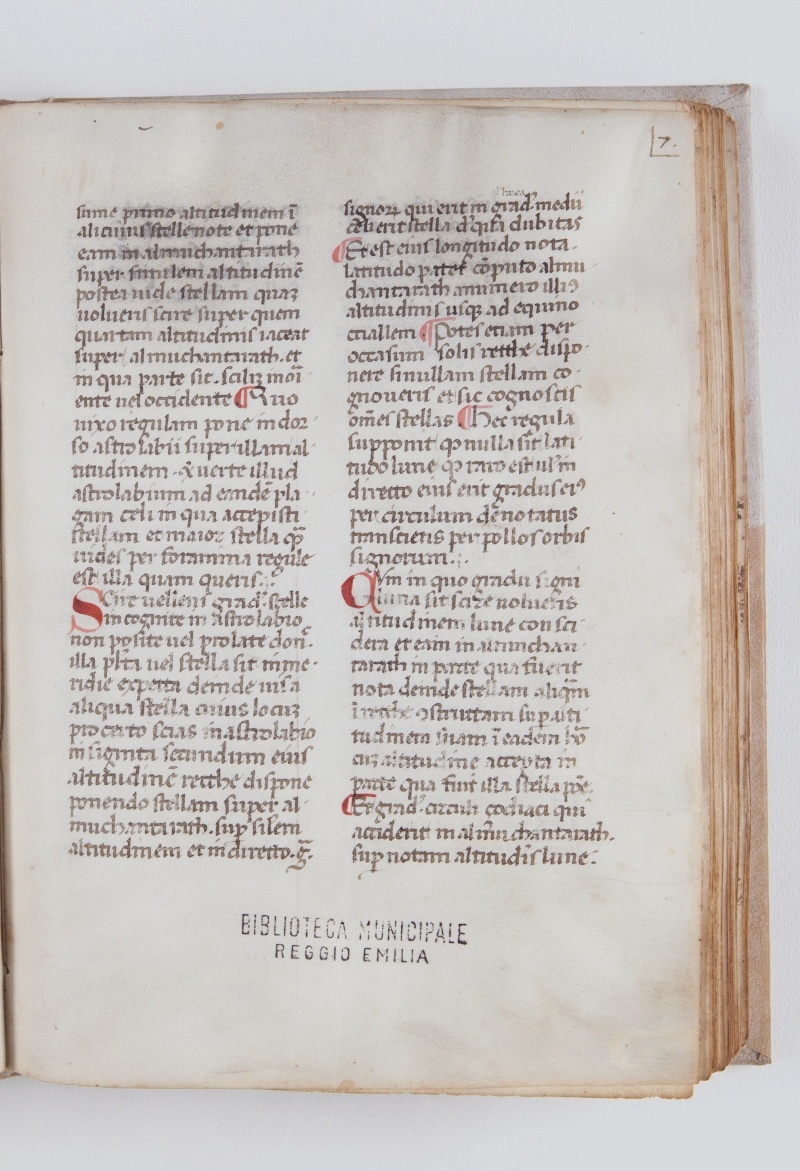 7.
sume primo altitudinem ī
alicuius stelle note et pone
eam in almuchantarath
super similem altitudinē
postea uide stellam quaꝫ
uolueris scire super quem
quartam altitudinis iaceat
super almuchantarath. et
in qua parte sit. scilꝫ
ente uel occidente ¶ Quo
uixo regulam pone in dor
so astrolabii super illam al
titudinem. uerte illud
astrolabium ad eandē pla
gam celi in qua accepisti
stellam et maior stella
uides per foramina regule
est illa quam queris.
Scire uelieris grad'. stelle
incognite in astrolabio
non posite uel prolate
illa uel stella sit in me
ridie experta deinde uisa
aliqua stella cuius locuꝫ
pro certo scias in astrolabio
in signita secundum eius
altitudinē recthe dispone
ponendo stellam super al
muchantarath. suꝑ silem
altitudinem et in directo. g̃.
linea
signoꝝ qui erit in grad' medii
celi erit stella d' dubitas
¶ Et est eius longitudo nota.
latitudo cōputo almu
chantarath a numero illiꝰ
altitudinis usqꝫ ad equino
ctiallem ¶ Potes etiam per
occasum solis recthe dispo
nere si nullam stellam co
gnoueris et sic cognoscis
om̄es stellas ¶ Hec regula
supponit ꝙ nulla sit lati
tudo lune ꝙ raro est ul' in
directo eius erit gradus eiꝰ
per circulum denotatus
transciens per pollos orbis
signorum.
Cum in quo gradu signi
luna sit scire uolueris
altitudinem lune consi
dera et eam in almuchan
tarath in parte qua fuerit
nota deinde stellam
altitudine accepta in
parte qua fuit illa stella
¶ Et grad'. circuli zodiaci qui
acciderit in almuchantarath.
suꝑ notam altitudīs lune.
BIBLIOTECA MUNICIPALE
REGGIO EMILIA